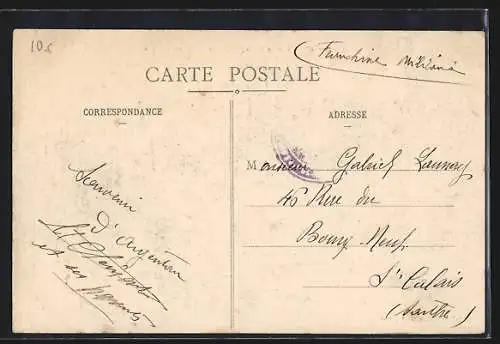 10€
Franchise Militaire
CARTE POSTALE
CORRESPONDANCE
ADRESSE
Souvenir
d'Argentan
et ses
Monsieur Gabriel Launay
46 Rue du
Bourg Neuf
St Calais
(Sarthe)